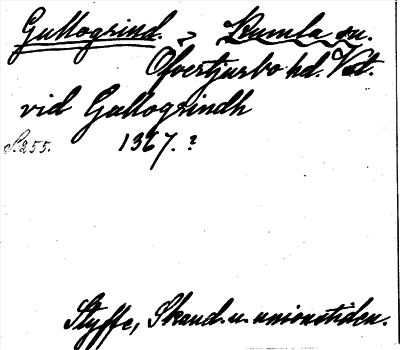 Gullogrind. Kumla sn.
Öfvertjurbo hd. Vst.
vid Gullogrindh
S. 255. 1367. ?
Styffe, Skand. u. unionstiden.